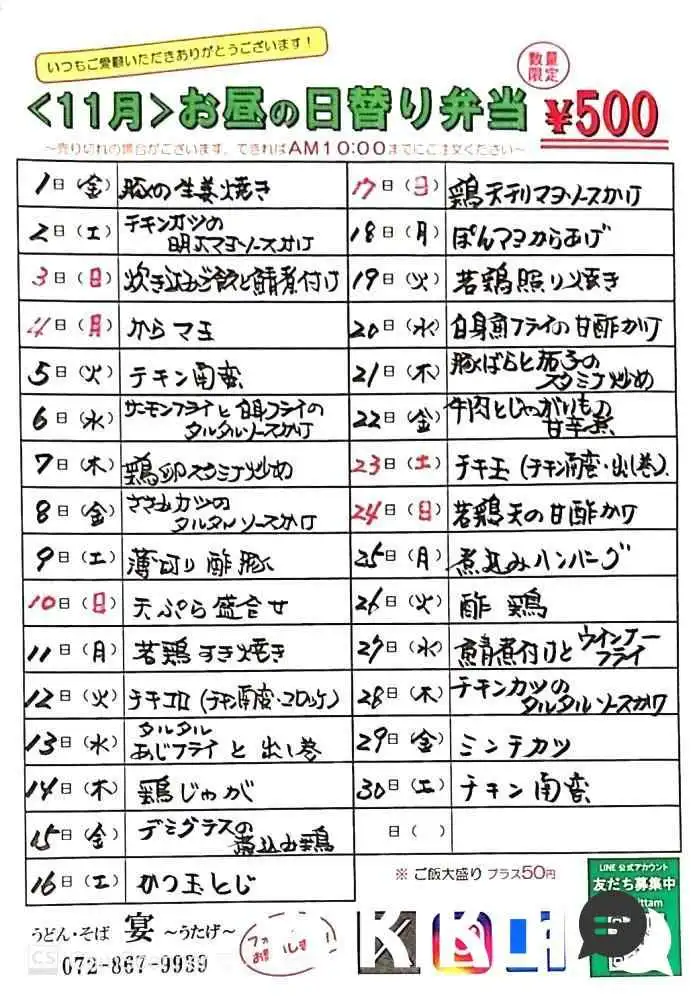 いつもご愛顧いただきありがとうございます！
数量
限定
<11月>お昼の日替り弁当 ¥500
～売り切れの場合がございます。できればAM10:00までにご注文ください～
1日(金) 豚の生姜焼き
2日(土) チキンカツの
明太マヨソースかけ
3日(日) 炊き込みご飯と鯖煮付け
4日(月) からマ玉
5日(火) チキン南蛮
6日(水) サーモンフライと白身フライの
タルタルソースかけ
7日(木) 鶏卵スタミナ炒め
8日(金) ささみカツの
タルタルソースかけ
9日(土) 薄切り酢豚
10日(日) 天ぷら盛合せ
11日(月) 若鶏すき焼き
12日(火) チキコロ(チキン南蛮・コロッケ)
13日(水) タルタル
あじフライと出し巻
14日(木) 鶏じゃが
15日(金) デミグラスの
煮込み鶏
16日(土) かつ玉とじ
17日(日) 鶏天テリマヨソースかけ
18日(月) ぽんマヨからあげ
19日(火) 若鶏照り焼き
20日(水) 白身魚フライの甘酢かけ
21日(木) 豚ばらと茄子の
スタミナ炒め
22日(金) 牛肉とじゃがいもの
甘辛煮
23日(土) チキ玉(チキン南蛮・出し巻)
24日(日) 若鶏天の甘酢かけ
25日(月) 煮込みハンバーグ
26日(火) 酢鶏
27日(水) 鯖煮付けとウインナー
フライ
28日(木) チキンカツの
タルタルソースかけ
29日(金) ミンチカツ
30日(土) チキン南蛮
日( )
※ ご飯大盛り プラス50円
うどん・そば 宴 ～うたげ～
072-867-9939
LINE 公式アカウント
友だち募集中
CS